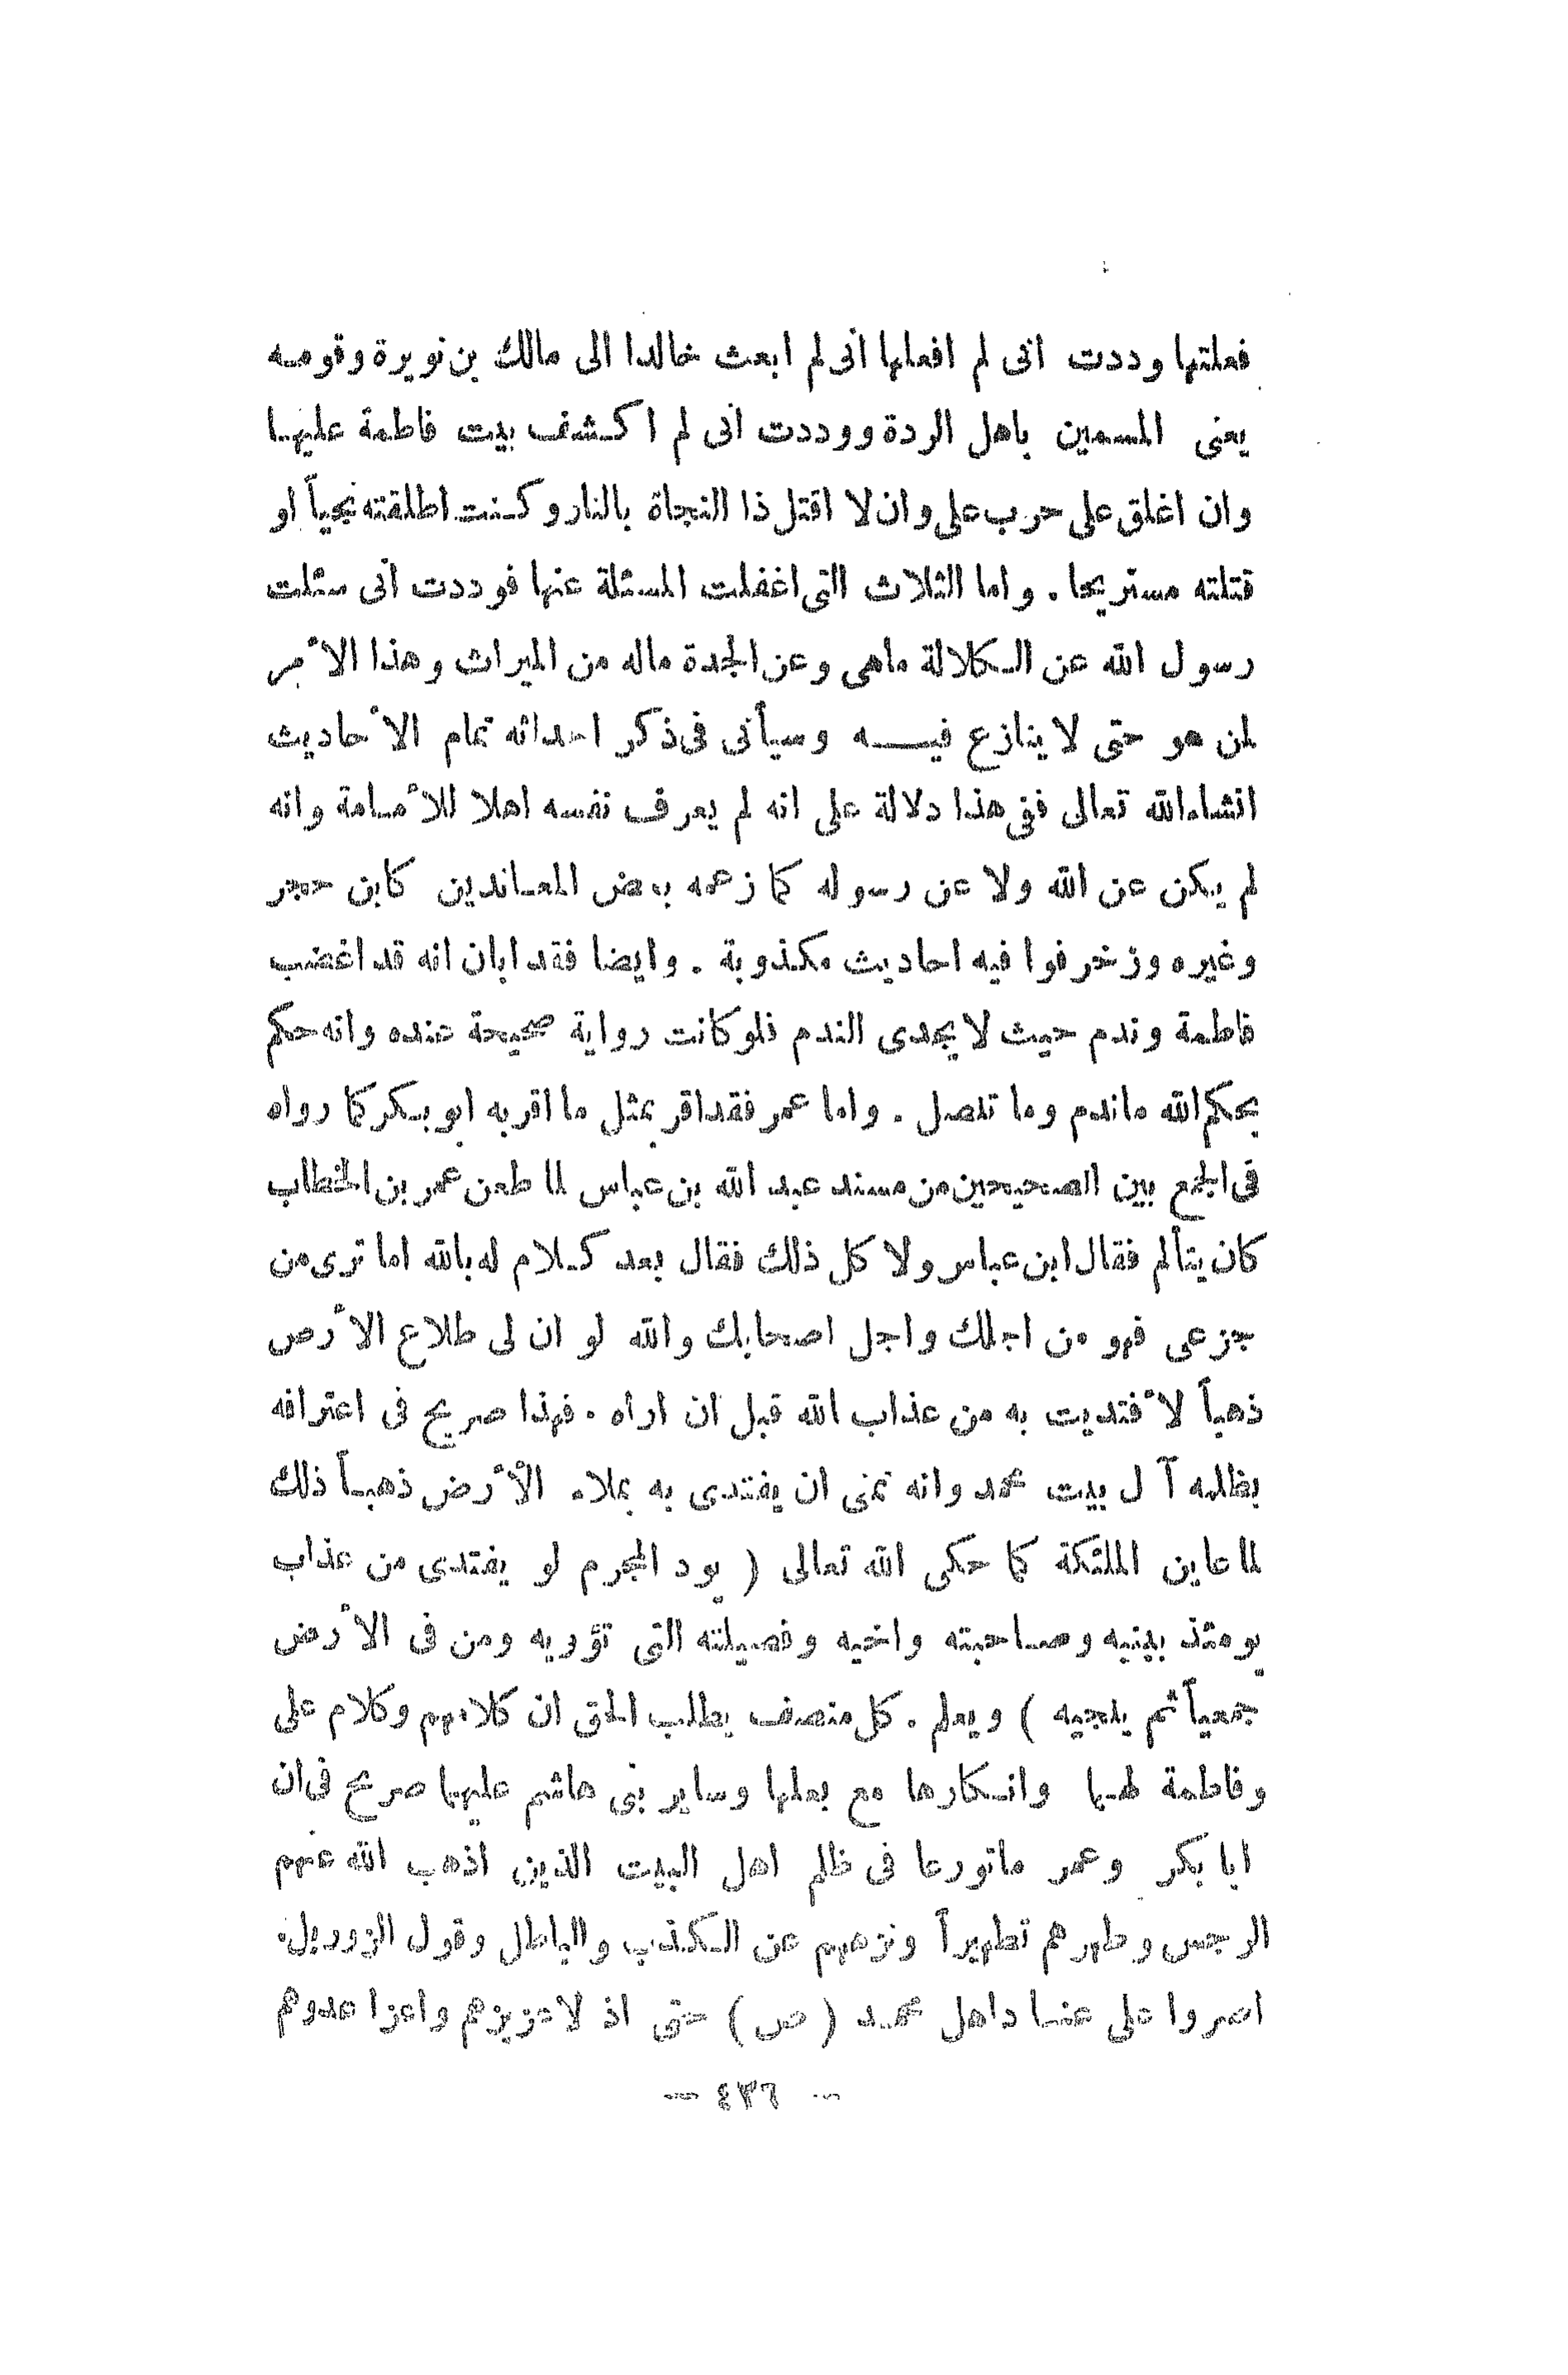 فعلتها وددت انى لم افعلها انى لم ابعث خالدا الى مالك بن نويرة وقومه
يعنى المسمين باهل الردة ووددت انى لم اكشف بيت فاطمة عليها
وان اغلق على حرب على وان لا اقتل ذا النجاة بالنار وكنت اطلقته نجياً او
قتلته مستريحا . واما الثلاث التى اغفلت المسئلة عنها فوددت انى سئلت
رسول الله عن الكلالة ماهى وعن الجدة ماله من الميراث وهذا الأمر
لمن هو حتى لا ينازع فيه وسيأتى فى ذكر احداثه تمام الأحاديث
انشاءالله تعالى ففى هذا دلالة على انه لم يعرف نفسه اهلا للأمامة وانه
لم يكن عن الله ولا عن رسوله كما زعمه بعض المعاندين كابن حجر
وغيره وزخرفوا فيه احاديث مكذوبة . وايضا فقد ابان انه قد اغضب
فاطمة وندم حيث لا يجدى الندم فلو كانت رواية صحيحة عنده وانه حكم
بحكم الله ماندم وما تنصل . واما عمر فقد اقر بمثل ما اقربه ابو بكر كما رواه
فى الجمع بين الصحيحين من مسند عبد الله بن عباس لما طعن عمر بن الخطاب
كان يتألم فقال ابن عباس ولا كل ذلك فقال بعد كلام له بالله اما ترى من
جزعى فهو من اجلك واجل اصحابك والله لو ان لى طلاع الأرض
ذهباً لأفتديت به من عذاب الله قبل ان اراه . فهذا صريح فى اعترافه
بظلمه آل بيت محمد وانه تمنى ان يفتدى به بملاء الأرض ذهباً ذلك
لما عاين الملئكة كما حكى الله تعالى ( يود المجرم لو يفتدى من عذاب
يومئذ ببنيه وصاحبته واخيه وفصيلته التى تؤويه ومن فى الأرض
جمعياً ثم ينجيه ) ويعلم . كل منصف يطلب الحق ان كلامهم وكلام على
وفاطمة لهما وانكارها مع بعلها وساير بنى هاشم عليهما صريح فى ان
ابا بكر وعمر ماتورعا فى ظلم اهل البيت الذين اذهب الله عنهم
الرجس وطهرهم تطهيراً ونزههم عن الكذب والباطل وقول الزور بل.
اصروا على عناد اهل محمد ( ص ) حتى اذ لا عزيزهم واعزا عدوهم
— ٤٣٦ —